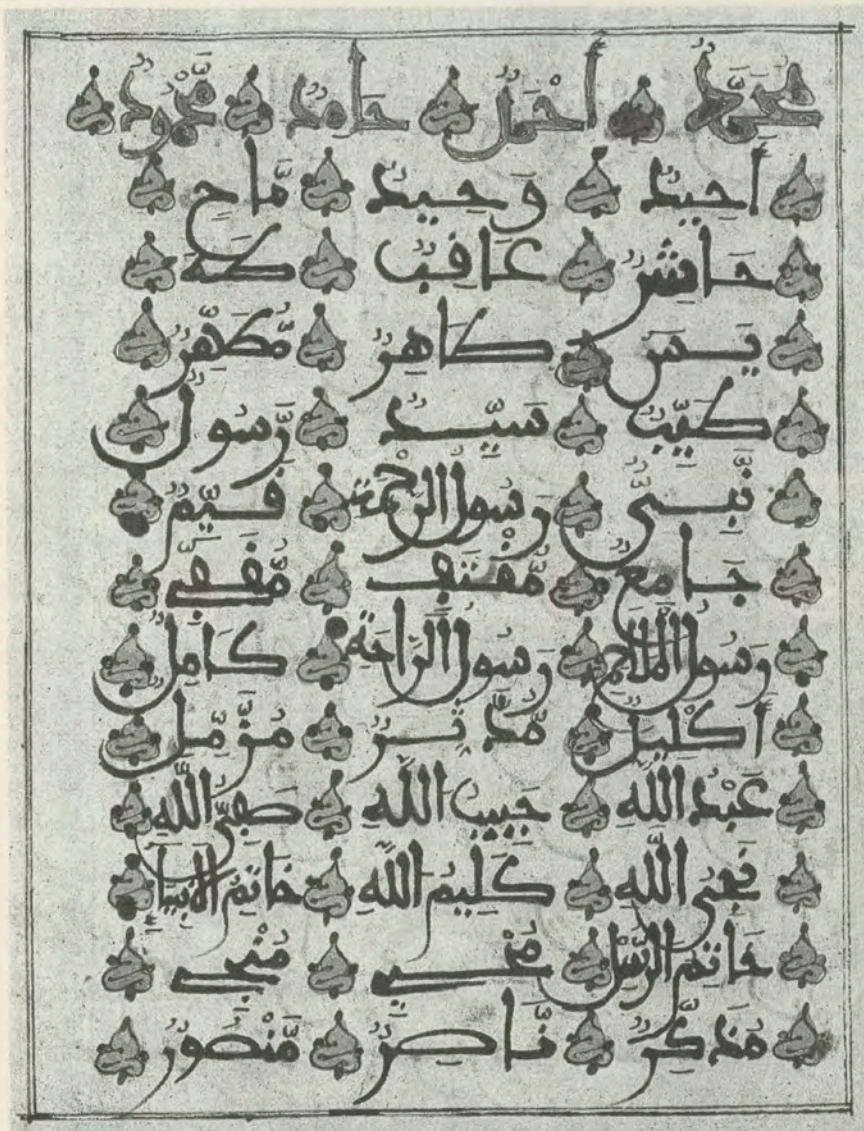 مُحَمَّدٌ أَحْمَدٌ حَامِدٌ مَّحْمُودٌ
أَحِيدٌ وَحِيدٌ مَّاحٍ
حَاشِرٌ عَاقِبٌ طَهَ
يَسَ طَاهِرٌ مُّطَهَّرٌ
طَيِّبٌ سَيِّدٌ رَّسُولٌ
نَّبِيٌّ رَسُولُ الرَّحْمَةِ قَيِّمٌ
جَامِعٌ مُّقْتَفٍ مُّقَفِّى
رَسُولُ الْمَلَاحِمِ رَسُولُ الرَّاحَةِ كَامِلٌ
إِكْلِيلٌ مُّدَّثِّرٌ مُزَّمِّلٌ
عَبْدُ اللَّهِ حَبِيبُ اللَّهِ صَفِيُّ اللَّهِ
نَجِيُّ اللَّهِ كَلِيمُ اللَّهِ خَاتِمُ الْأَنْبِيَاءِ
خَاتِمُ الرُّسُلِ مُحْيِي مُنْجِي
مُذَكِّرٌ نَّاصِرٌ مَّنْصُورٌ